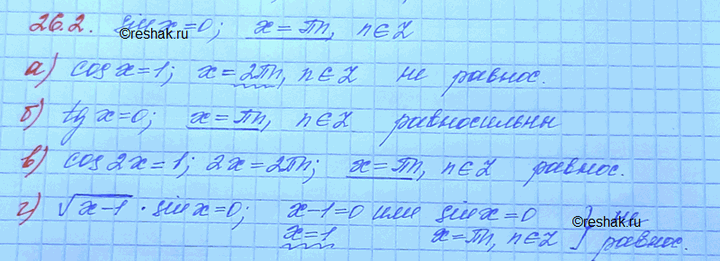 26.2. sin x = 0; x = πn, n ∈ Z
©reshak.ru
а) cos x = 1; x = 2πn, n ∈ Z не равнос.
б) tg x = 0; x = πn, n ∈ Z равносильны
в) cos 2x = 1; 2x = 2πn; x = πn, n ∈ Z равнос.
г) √x-1 · sin x = 0; x-1=0 или sin x = 0 } не
©reshak.ru
x = 1 x = πn, n ∈ Z равнос.